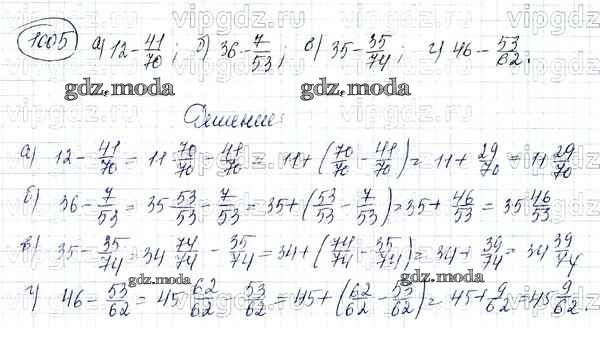 1005 а) 12 - 41/70; б) 36 - 7/53; в) 35 - 35/74; г) 46 - 53/62.
gdz.moda gdz.moda
Решение:
а) 12 - 41/70 = 11 70/70 - 41/70 = 11 + (70/70 - 41/70) = 11 + 29/70 = 11 29/70
б) 36 - 7/53 = 35 53/53 - 7/53 = 35 + (53/53 - 7/53) = 35 + 46/53 = 35 46/53
в) 35 - 35/74 = 34 74/74 - 35/74 = 34 + (74/74 - 35/74) = 34 + 39/74 = 34 39/74
gdz.moda gdz.moda
г) 46 - 53/62 = 45 62/62 - 53/62 = 45 + (62/62 - 53/62) = 45 + 9/62 = 45 9/62.